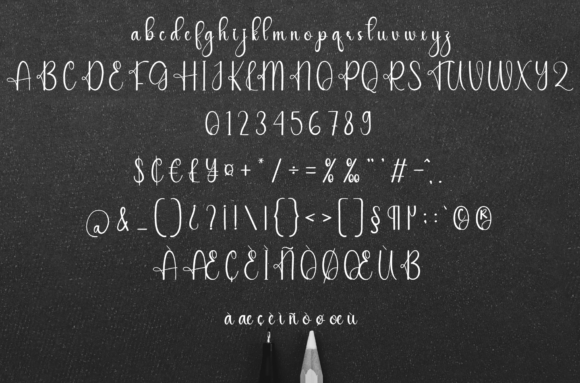 abcdefghijklmnopqrstuvwxyz
ABCDEFGHIJKLMNOPQRSTUVWXYZ
0123456789
$₵€£¥¤+*/÷=%‰"'#-^,.
@&_()¿?¡!\|{}<>[]§¶µ::`©®
ÀÆÇÈÌÑÒØŒÙB
àæçèìñòøœù